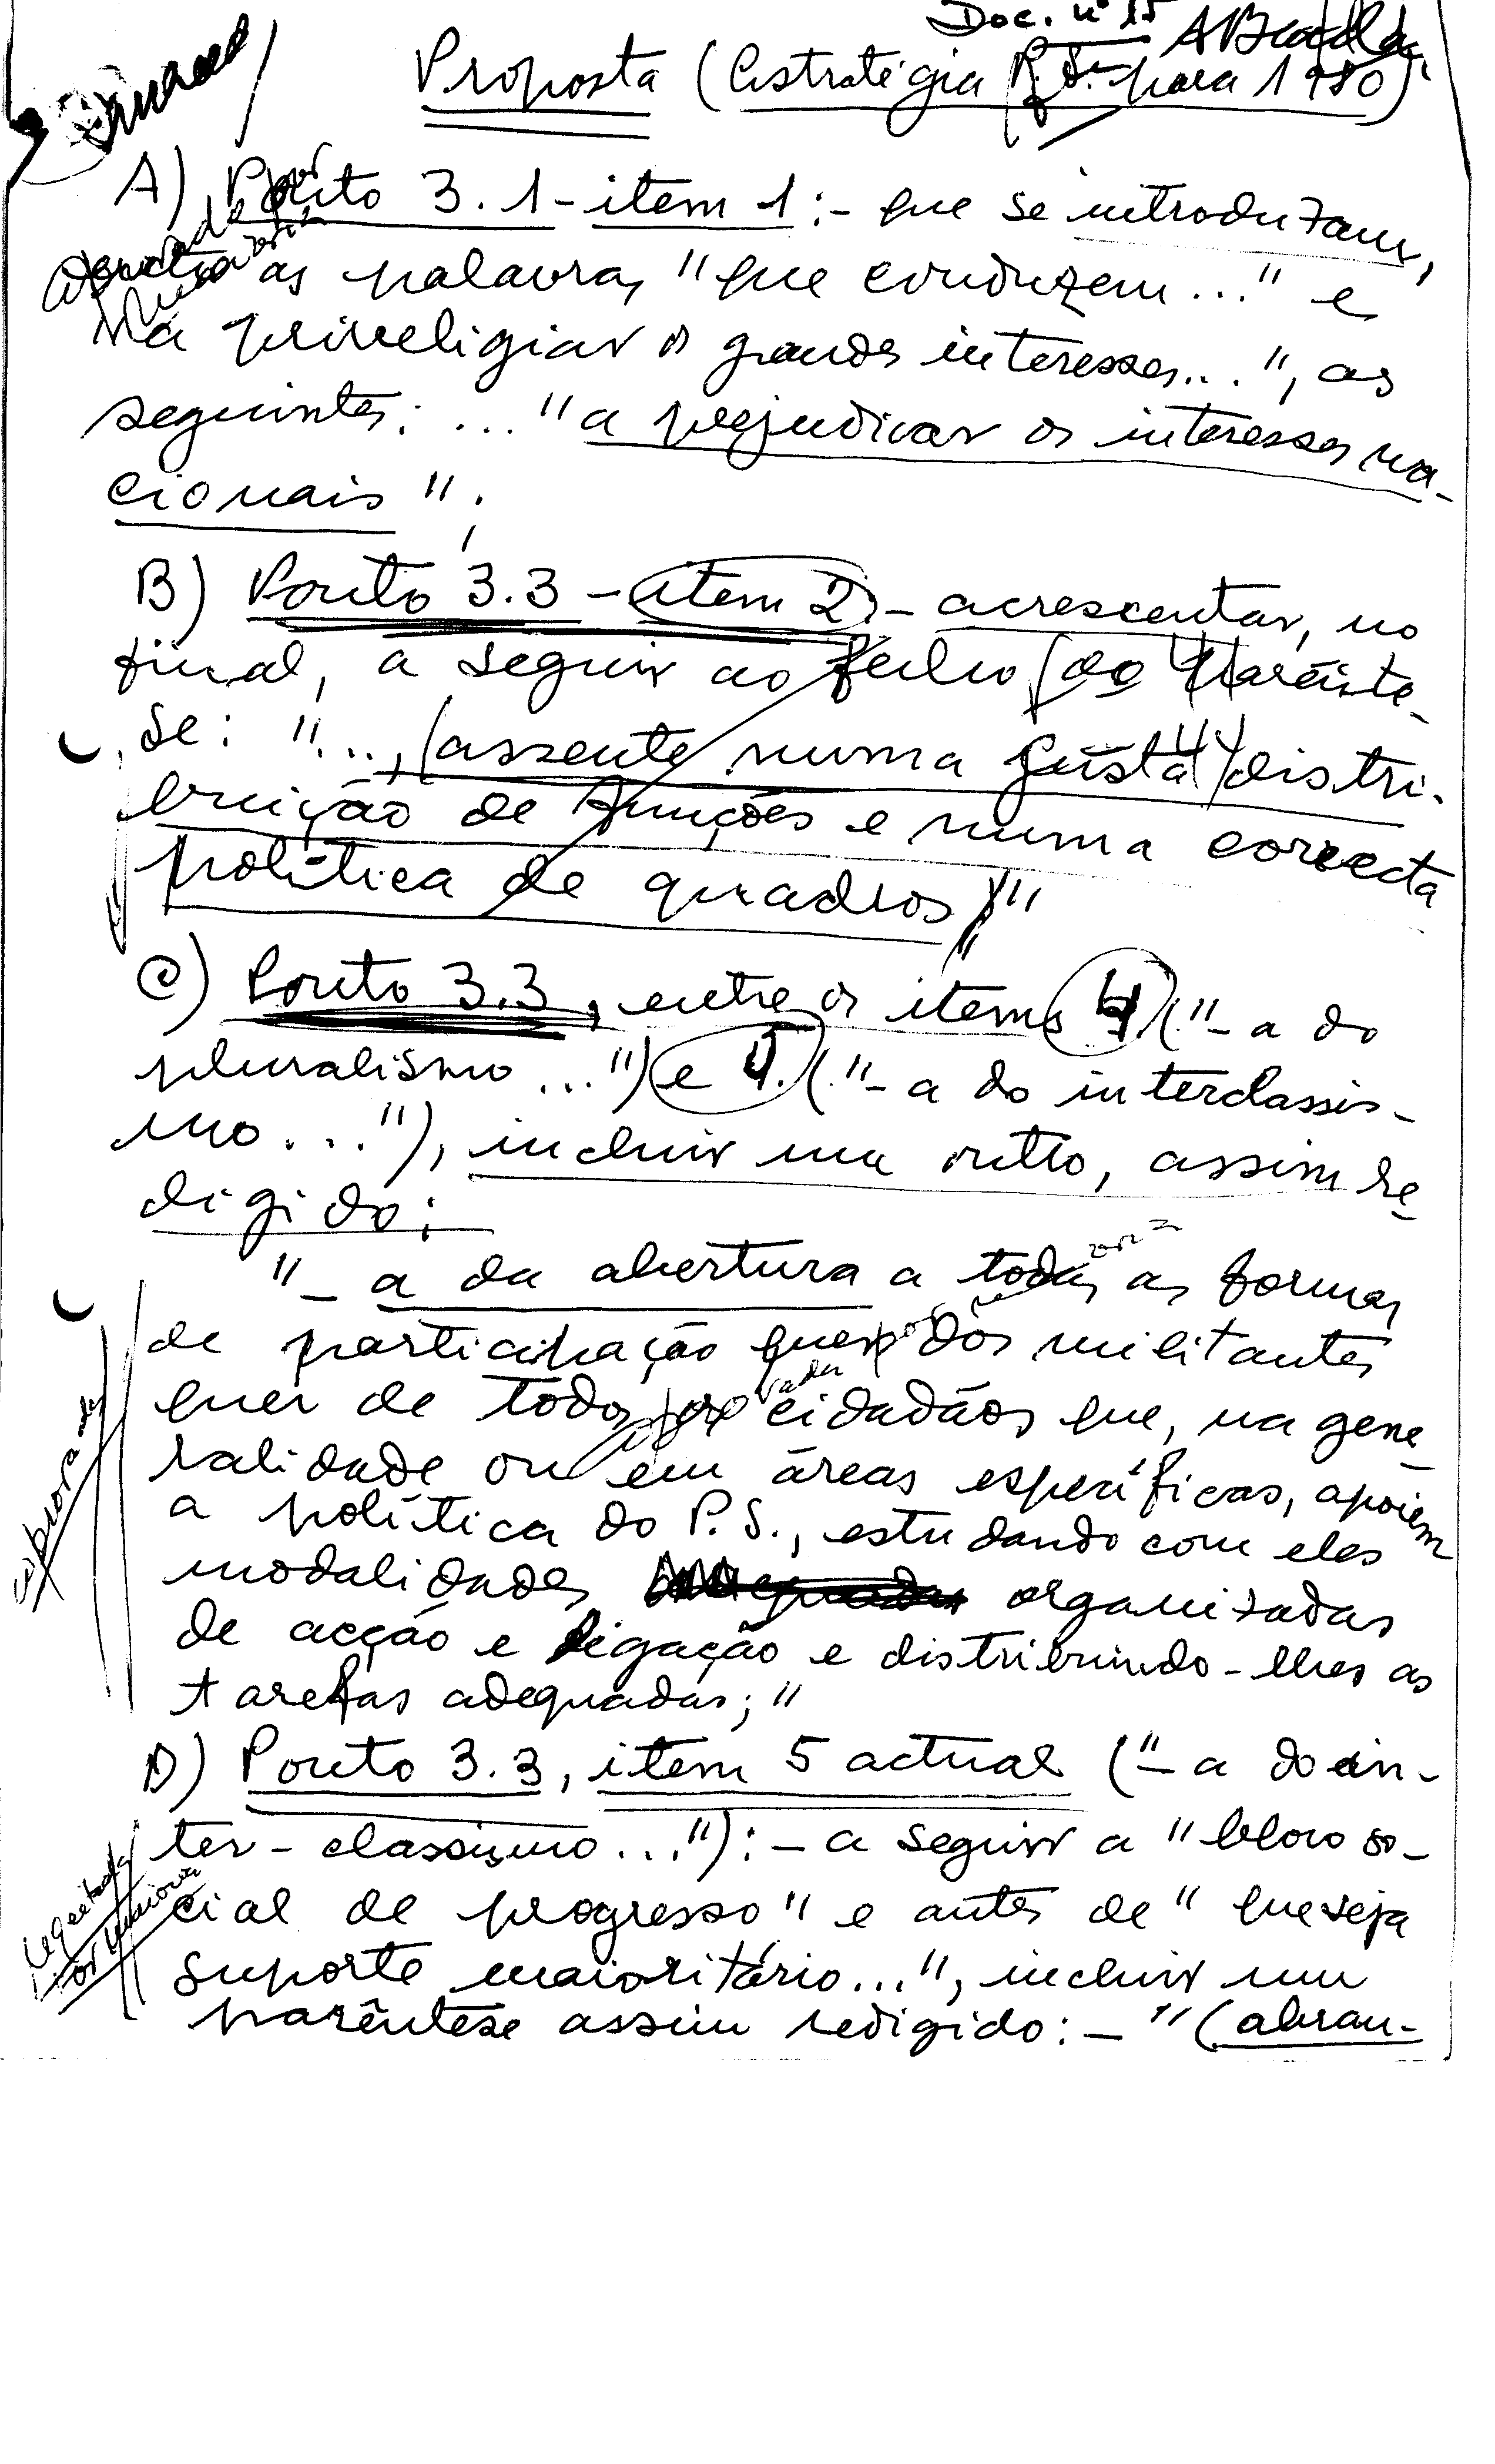 Doc. nº 15
Proposta (Estratégia P.S. para 1980)
A) Ponto 3.1 - item 1:- que se introduzam,
as palavras "que conduzem..." e
"a priveligiar os grandes interesses...", as
seguintes: ... "a prejudicar os interesses na-
cionais";
B) Ponto 3.3 - item 2:- acrescentar, no
final, a seguir ao fecho do parênte-
se: "..., (assente numa justa distri-
buição de funções e numa correcta
política de quadros)"
C) Ponto 3.3, entre os items 4 ("- a do
pluralismo...") e ("- a do interclassis-
mo..."), incluir um outro, assim re-
digido:
"- a da abertura a todas as formas
de participação quer dos militantes
quer de todos os cidadãos que, na gene-
ralidade ou em áreas específicas, apoiem
a política do P.S., estudando com eles
modalidades organizadas
de acção e ligação e distribuindo-lhes as
tarefas adequadas;"
D) Ponto 3.3, item 5 actual ("- a do in-
ter-classismo..."):- a seguir a "bloco so-
cial de progresso" e antes de "que seja
suporte maioritário...", incluir um
parêntese assim redigido:- "(abran-